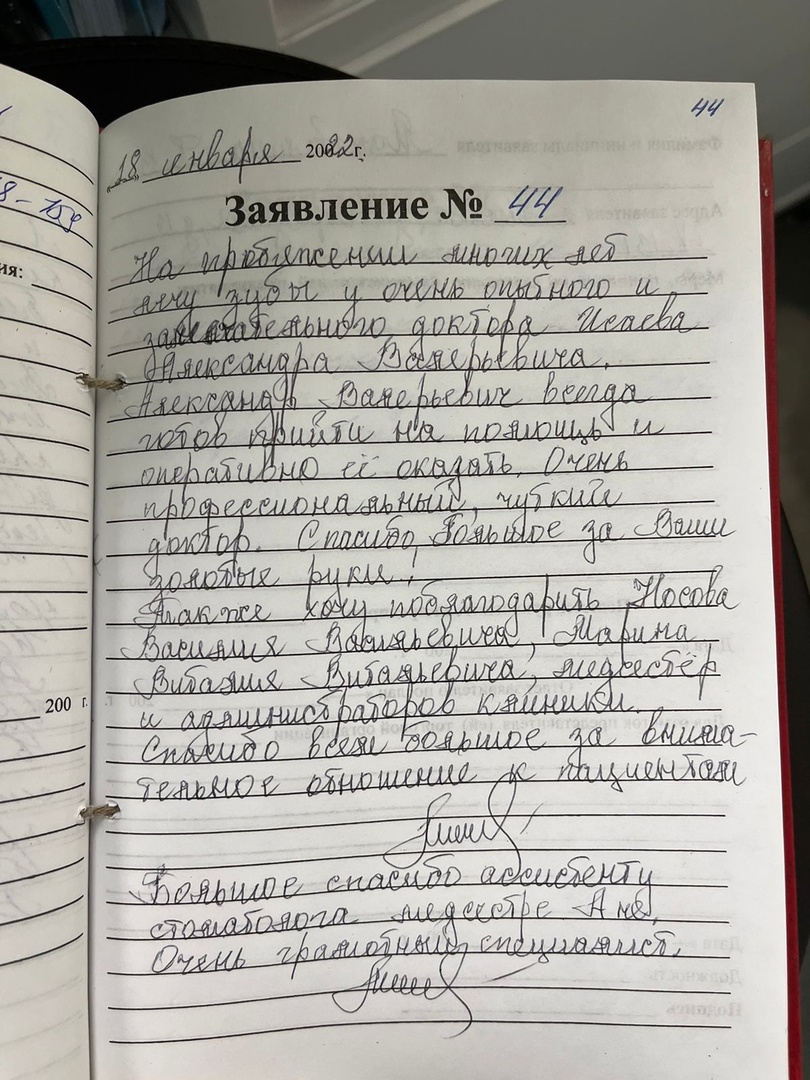 44
18 января 20022г.
Заявление № 44
На протяжении многих лет
лечу зубы у очень опытного и
замечательного доктора Исаева
Александра Валерьевича.
Александр Валерьевич всегда
готов прийти на помощь и
оперативно её оказать. Очень
профессиональный, чуткий
доктор. Спасибо большое за Ваши
золотые руки!
Также хочу поблагодарить Носова
Василия Васильевича, Марина
Виталия Витальевича, медсестёр
и администраторов клиники.
Спасибо всем большое за внима-
тельное отношение к пациентам
Большое спасибо ассистенту
стоматолога медсестре Ане.
Очень грамотный специалист.
8-159
ия:
200 г.